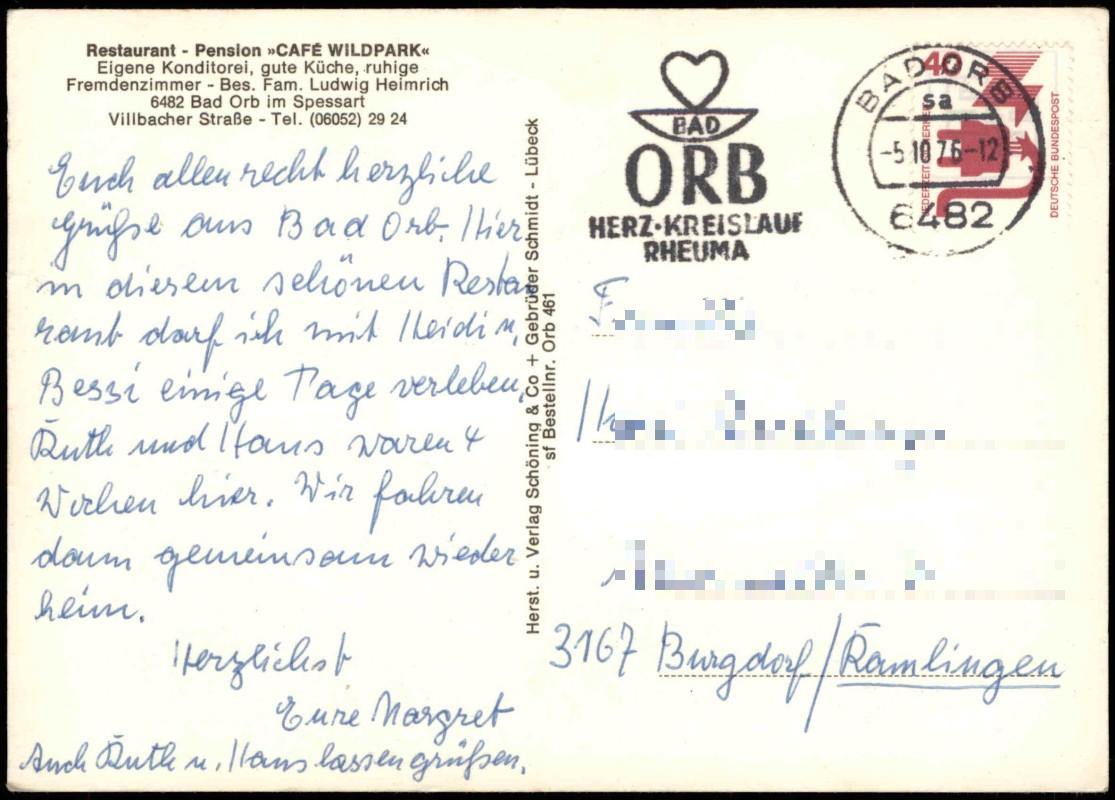 Restaurant - Pension »CAFÉ WILDPARK«
Eigene Konditorei, gute Küche, ruhige
Fremdenzimmer - Bes. Fam. Ludwig Heimrich
6482 Bad Orb im Spessart
Villbacher Straße - Tel. (06052) 29 24
Euch allen recht herzliche
Grüße aus Bad Orb. Hier
in diesem schönen Restau
rant darf ich mit Heidi u.
Bessi einige Tage verleben.
Ruth und Hans waren 4
Wochen hier. Wir fahren
dann gemeinsam wieder
heim.
Herzlichst
Eure Margret
Auch Ruth u. Hans lassen grüßen.
Herst. u. Verlag Schöning & Co + Gebrüder Schmidt - Lübeck
sf Bestellnr. Orb 461
BAD
ORB
HERZ·KREISLAUF
RHEUMA
BAD ORB
sa
-5.10.76-12
6482
40
DEUTSCHE BUNDESPOST
3167 Burgdorf/Ramlingen